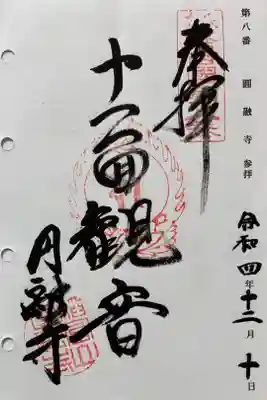 第八番 圓融寺参拝
令和四年十二月十日
奉拝
十一面観音
円融寺